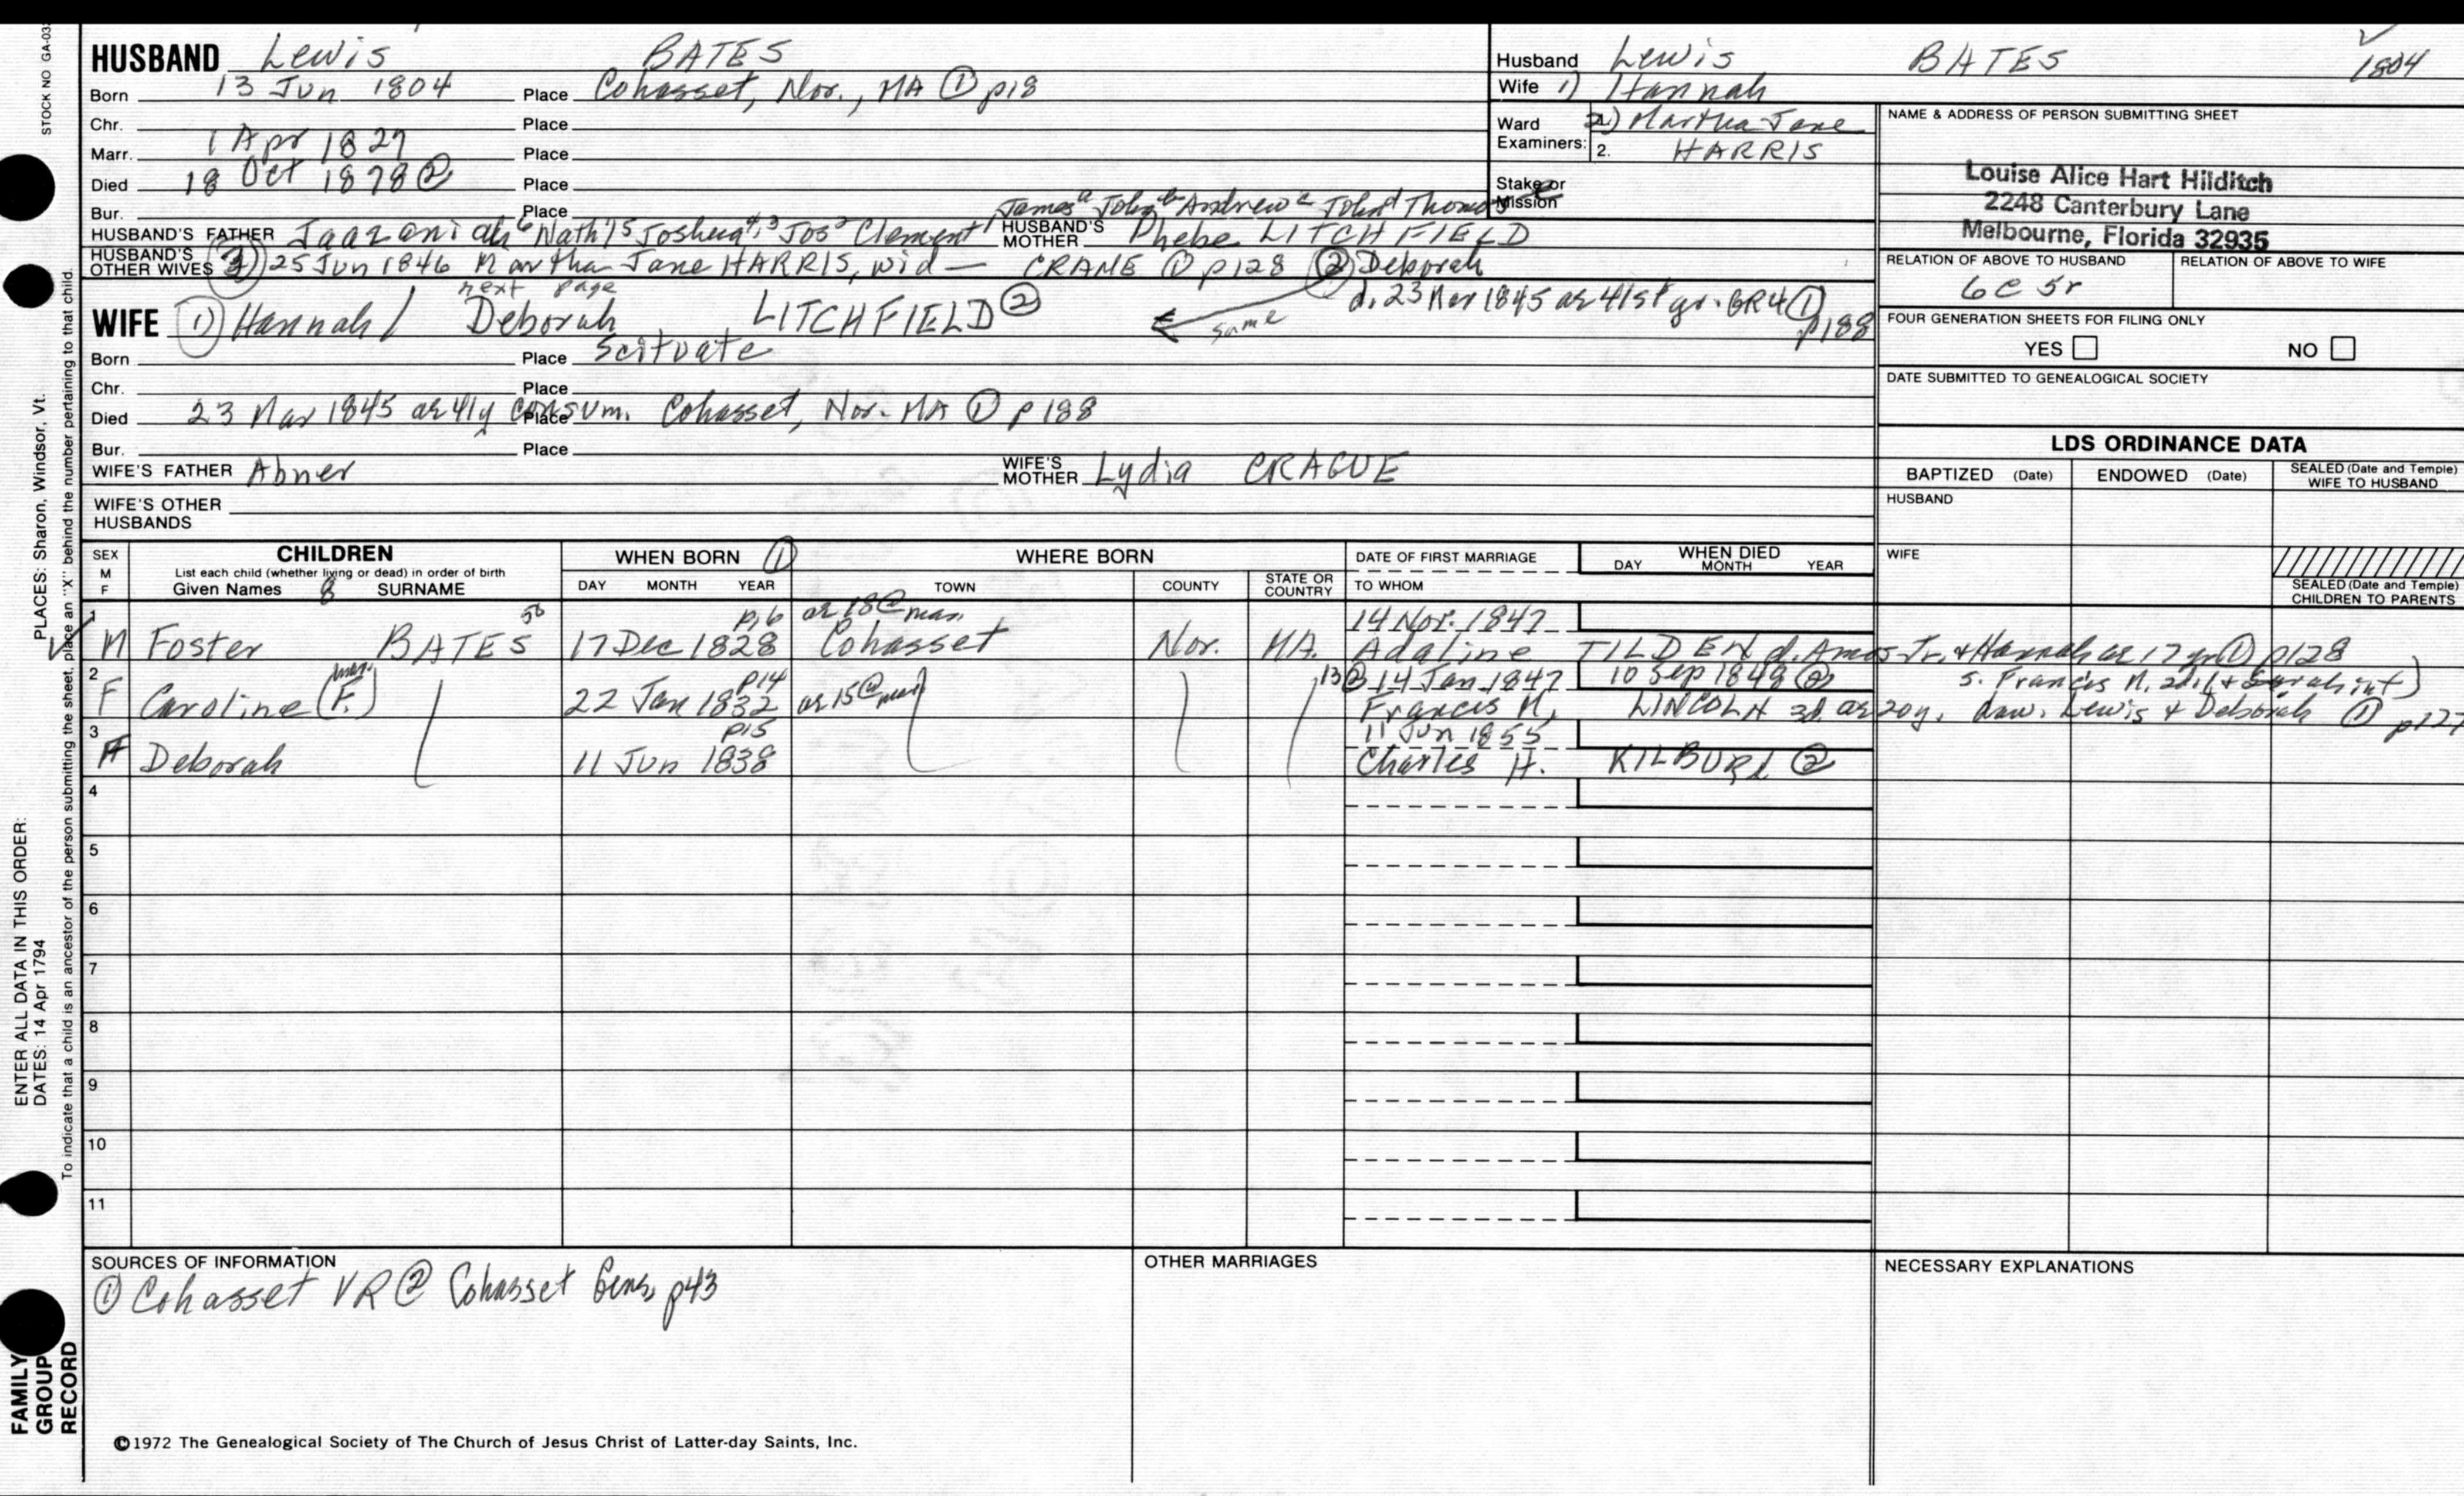 STOCK NO GA-03
HUSBAND Lewis BATES
Born 13 Jun 1804 Place Cohasset, Nor., MA ① p18
Chr. Place
Marr. 1 Apr 1827 Place
Died 18 Oct 1878 ② Place
Bur. Place
James John Andrew John Thomas
HUSBAND'S FATHER Jaazaniah 6 Nath'l 5 Joshua 4,3 Jos 2 Clement 1 HUSBAND'S MOTHER Phebe LITCHFIELD
HUSBAND'S OTHER WIVES 3) 25 Jun 1846 Martha Jane HARRIS, wid — CRANE ① p128 ② Deborah
next page
d. 23 Mar 1845 ae 41st yr. GR4 ① p188
same
WIFE 1) Hannah / Deborah LITCHFIELD ②
Born Place Scituate
Chr. Place
Died 23 Mar 1845 ae 41y consum. Place Cohasset, Nor. MA ① p188
Bur. Place
WIFE'S FATHER Abner WIFE'S MOTHER Lydia CRAGUE
WIFE'S OTHER HUSBANDS
Husband Lewis BATES 1804
Wife 1) Hannah
Ward 2) Martha Jane
Examiners: 2. HARRIS
Stake or Mission
NAME & ADDRESS OF PERSON SUBMITTING SHEET
Louise Alice Hart Hilditch
2248 Canterbury Lane
Melbourne, Florida 32935
RELATION OF ABOVE TO HUSBAND RELATION OF ABOVE TO WIFE
6C 5r
FOUR GENERATION SHEETS FOR FILING ONLY
YES NO
DATE SUBMITTED TO GENEALOGICAL SOCIETY
LDS ORDINANCE DATA
BAPTIZED (Date) ENDOWED (Date) SEALED (Date and Temple) WIFE TO HUSBAND
HUSBAND
WIFE
SEALED (Date and Temple) CHILDREN TO PARENTS
SEX M F
CHILDREN
List each child (whether living or dead) in order of birth
Given Names SURNAME
WHEN BORN ①
DAY MONTH YEAR
WHERE BORN
TOWN COUNTY STATE OR COUNTRY
DATE OF FIRST MARRIAGE
TO WHOM
WHEN DIED
DAY MONTH YEAR
p16 ae 18 @ mar. 14 Nov. 1847
1 M Foster BATES 17 Dec 1828 Cohasset Nor. MA. Adaline TILDEN d. Amos Jr. & Hannah ae 17 yr ① p128
mar. p14 13 ② 14 Jan 1847 10 Sep 1848 ② s. Francis M. 2d (& Sarah int)
2 F Caroline (F.) 22 Jan 1832 ae 15 @ mar Francis M. LINCOLN 3d ae 20y. dau. Lewis & Deborah ① p127
p15 11 Jun 1855
3 F Deborah 11 Jun 1838 Charles H. KILBURN ②
4
5
6
7
8
9
10
11
SOURCES OF INFORMATION
① Cohasset VR ② Cohasset Gens, p43
OTHER MARRIAGES
NECESSARY EXPLANATIONS
©1972 The Genealogical Society of The Church of Jesus Christ of Latter-day Saints, Inc.
ENTER ALL DATA IN THIS ORDER:
DATES: 14 Apr 1794 PLACES: Sharon, Windsor, Vt.
To indicate that a child is an ancestor of the person submitting the sheet, place an "X" behind the number pertaining to that child.
FAMILY GROUP RECORD